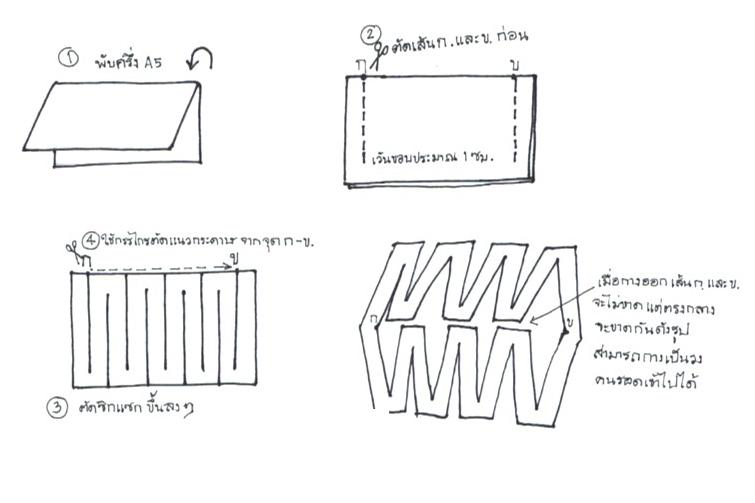 ① พับครึ่ง A5
② ตัดเส้น ก. และ ข. ก่อน
ก
ข
เว้นขอบประมาณ 1 ซม.
④ ใช้กรรไกรตัดแนวกระดาษ จากจุด ก-ข.
ก
ข
③ ตัดซิกแซก ขึ้นลง ๆ
ก
ข
เมื่อกางออก เส้น ก. และ ข.
จะไม่ขาด แต่ตรงกลาง
จะขาดกันดังรูป
สามารถกางเป็นวง
คนรอดเข้าไปได้